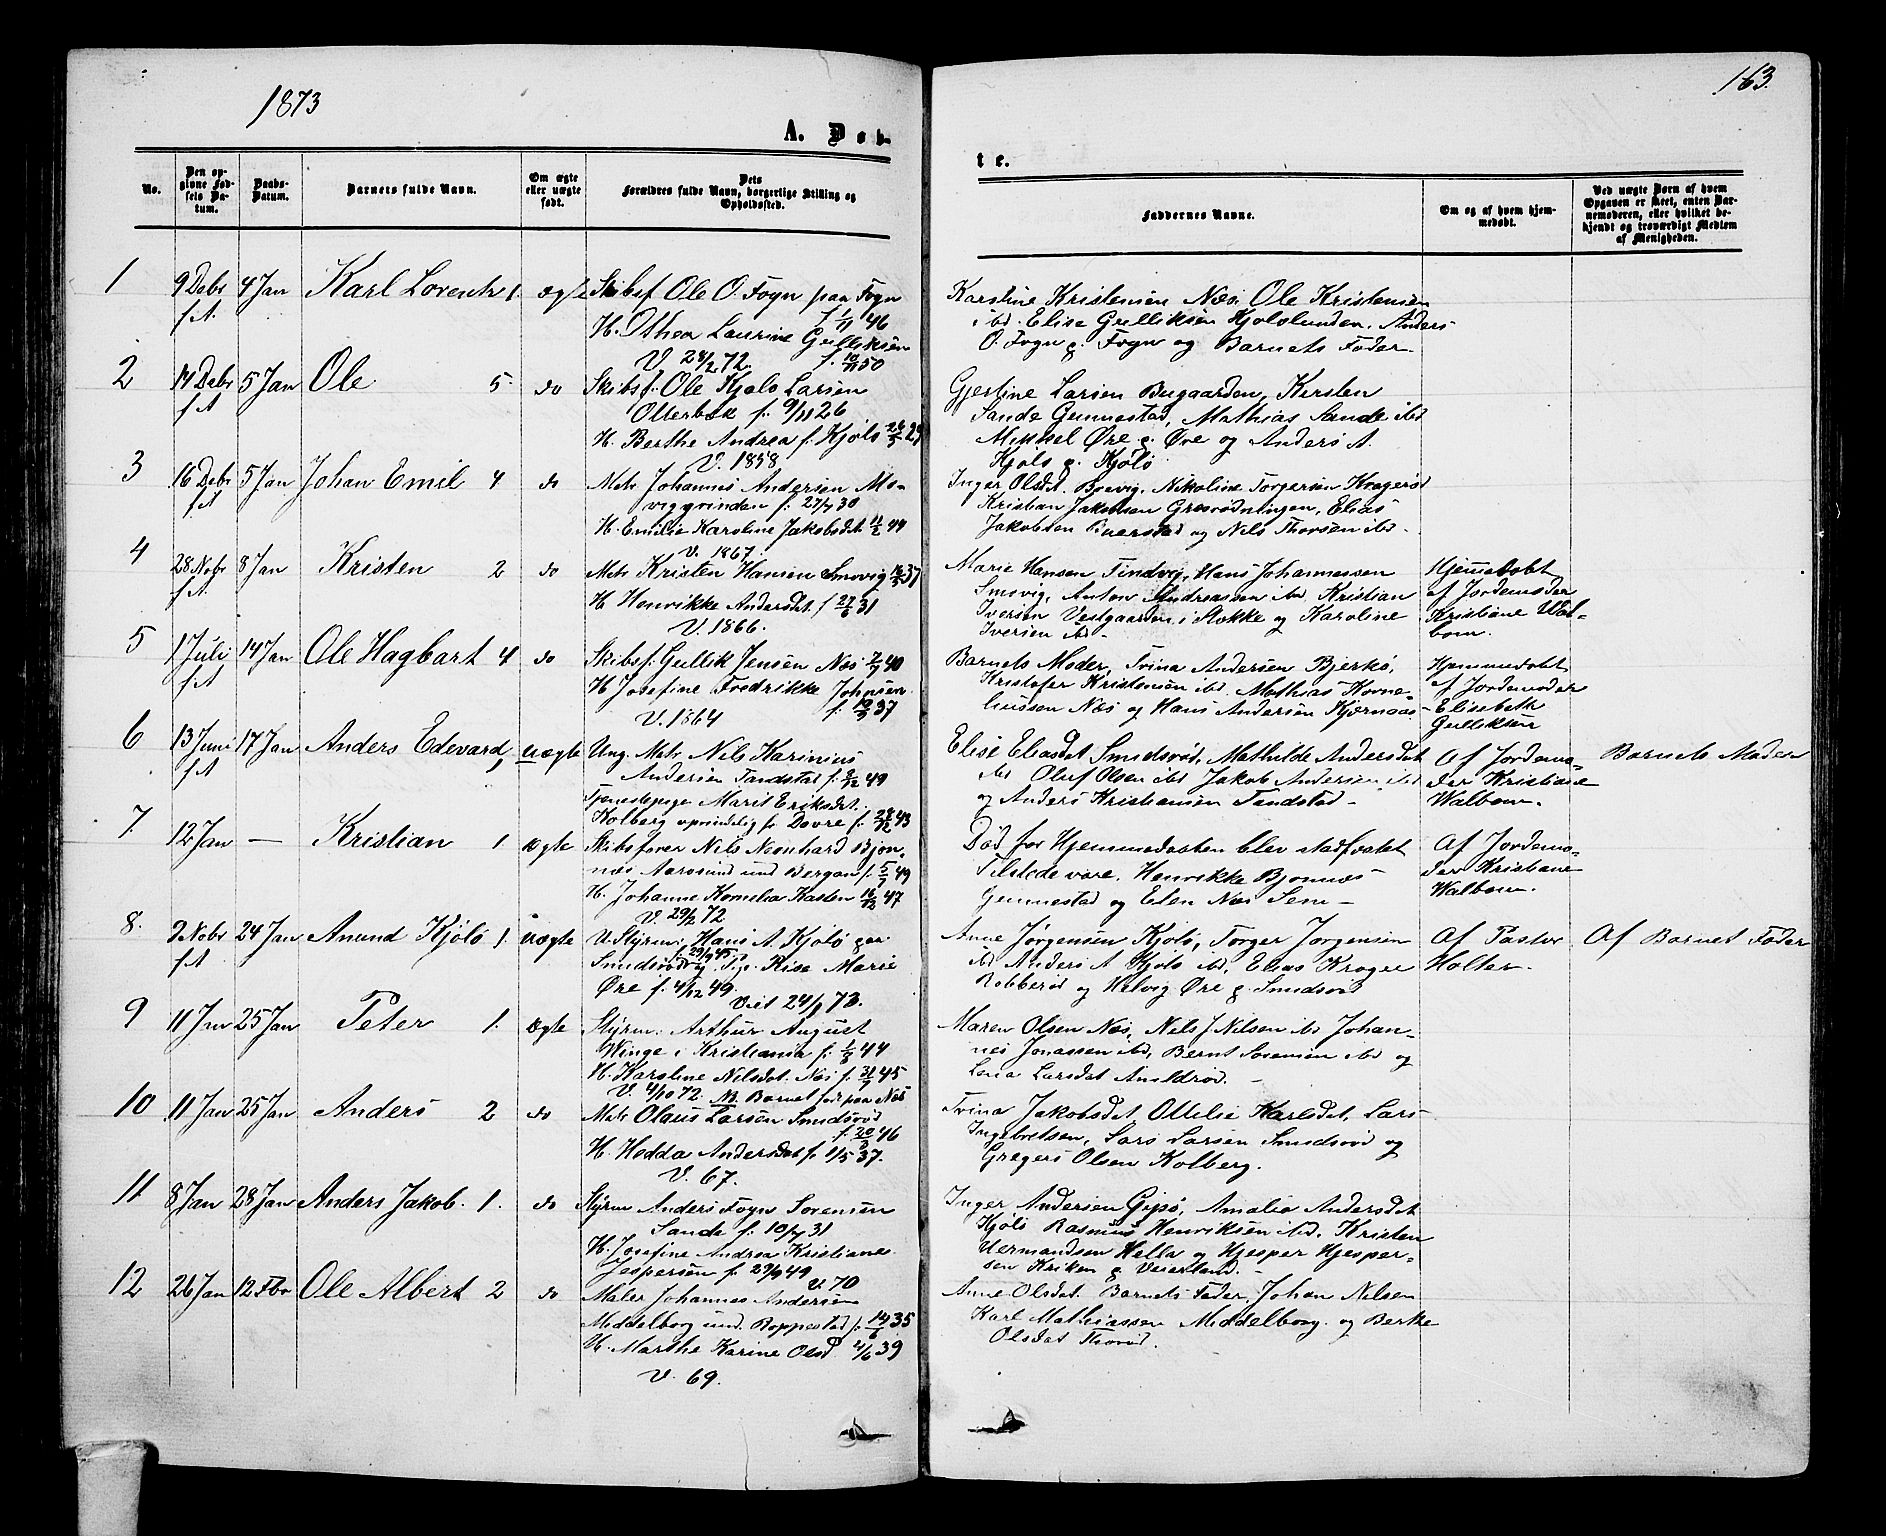 1873
163.
A. Døb-
te.
No.
Den op-
givne Fød-
sels Da-
tum.
Daabs-
Datum.
Barnets fulde Navn.
Om ægte
eller uægte
født.
Dets
Forældres fulde Navn, borgerlige Stilling og
Opholdssted.
Faddernes Navne.
Om og af hvem hjem-
medøbt.
Ved uægte Børn af hvem
Opgaven er skeet, enten Bar-
nemoderen, eller hvilket be-
kjendt og troværdigt Medlem
af Menigheden.
1
9 Debr
f A.
4 Jan
Karl Lorents 1.
ægte
Skibsf Ole O. Fogn paa Fogn
f. 1/11 46
H. Othea Laurine Gulliksen
V. 28/2 72. f. 10/11 50
Karoline Kristensen Næs. Ole Kristensen
ibd. Elise Gulliksen Kjølølunden. Anders
O. Fogn g. Fogn og Barnets Fader.
2
14 Debr
f A
5 Jan
Ole 5.
do
Skibsf. Ole Kjølø Larsen
Otterbæk f. 9/11 26
H. Berthe Andrea f. Kjølø 26/5 29
V. 1858
Gjertine Larsen Bugaarden, Kirsten
Sande Gunnestad, Mathias Sande ibd
Mikkel Øre g. Øre og Anders A.
Kjølø g. Kjølø
3
16 Debr
f A
5 Jan
Johan Emil 4
do
Matr Johannes Andersen Mo-
viggrinden f. 27/7 30
H. Emilie Karoline Jakobsdt 11/2 44
V. 1867.
Inger Olsdt. Brevig, Nikoline Torgersen Kragerød
Kristian Jakobsen Gresrødningen, Elias
Jakobsen Buerstad og Nils Thorsen ibd.
4
28 Nobr
f A.
8 Jan
Kristen 2
do
Matr Kristen Hansen Smovig 16/5 37
H Henrikke Andersdt. f 27/6 31
V. 1866.
Marie Hansen Tindvig, Hans Johannessen
Smovig, Anton Andreassen ibd, Kristian
Iversen Vestgaarden i Stokke og Karoline
Iversen ibd.
Hjemmedøbt
af Jordemoder
Kristiane Wal-
bom.
5
1 Juli
f A
14 Jan
Ole Hagbart 4
do
Skibsf. Gullik Jensen Næs 2/7 40
H Josefine Fredrikke Johnsen.
V. 1864 f. 10/3 37
Barnets Moder, Trina Andersen Bjerkø,
Kristofer Kristensen ibd. Mathias Korne-
liussen Næs og Hans Andersen Kjærnaas
Hjemmedøbt
af Jordemoder
Elisabeth
Gulliksen
6
13 Juni
f A
17 Jan
Anders Edevard,
uægte
Ung. Matr Nils Karinius
Andersen Tandstad f. 9/12 49
Tjenestepige Marit Eriksdt.
Kolberg oprindelig fr Dovre f. 28/12 43
Elise Eliasdt Smidsrød, Mathilde Andersdt
ibd Oluf Olsen ibd Jakob Andersen ibd
og Anders Kristiansen Tandstad
Af Jordemo-
der Kristiane
Walbom.
Barnets Moder
7.
12 Jan
—
Kristian 1.
ægte
Skibsfører Nils Neonhard Bjøn-
næs Aarøsund und Bergan f. 5/7 49
H. Johanne Kornelia Kasten 16/12 47
V. 29/2 72
Død før Hjemmedaaben blev stadfæstet
Tilstede vare. Henrikke Bjønnæs
Gunnestad og Elen Næs Sem
Af Jordemo-
der Kristiane
Walbom.
8.
9 Nobr
f A
24 Jan
Amund Kjølø 1.
uægte
U. Styrm. Hans A. Kjølø gar
Smidsrødvig. Pige Rise Marie
Øre f. 4/12 49.
Viet 24/1 73.
Anne Jørgensen Kjølø, Torger Jørgensen
ibd Anders A Kjølø ibd, Elias Krøger
Robberød og Helvig Øre g. Smidsrød
Af Pastor
Holter.
Af Barnets Fader
9
11 Jan
25 Jan
Peter 1.
ægte
Styrm. Arthur August
Winge i Kristiania f. 1/8 44
H. Karoline Nilsdt. Næs f. 31/7 45
V. 4/10 72. NB. Barnet født paa Næs
Maren Olsen Næs, Nils J Nilsen ibd Johan-
nes Jonassen ibd, Bernt Sørensen ibd og
Lena Larsdt Amdrød.
10
11 Jan
25 Jan
Anders 2
do
Matr Olaus Larsen Smidsrød
f 20/3 46
H. Hedda Andersdt f. 1/5 37.
V. 67.
Trina Jakobsdt, Ottilie Karlsdt, Lars
Ingebretsen, Lars Larsen Smidsrød og
Gregers Olsen Kolberg.
11
8 Jan
28 Jan
Anders Jakob. 1.
do
Styrm Anders Fogn Sørensen
Sande f. 10/7 31
H. Josefine Andrea Kristiane
Jespersen f. 29/9 49
V. 70
Inger Andersen Gipø, Amalia Andersdt
Kjølø Rasmus Henriksen ibd. Kristen
Hermandsen Hella og Hjesper Hjesper-
sen Kriken g Veierland.
12
26 Jan
12 Fbr
Ole Albert 2
do
Maler Johannes Andersen
Middelborg und. Roppestad f. 14/6 35
H. Marthe Karine Olsd 4/6 39
V. 69.
Anne Olsdt. Barnets Fader, Johan Nilsen
Karl Mathiassen Middelborg. og Berthe
Olsdat Thorød.